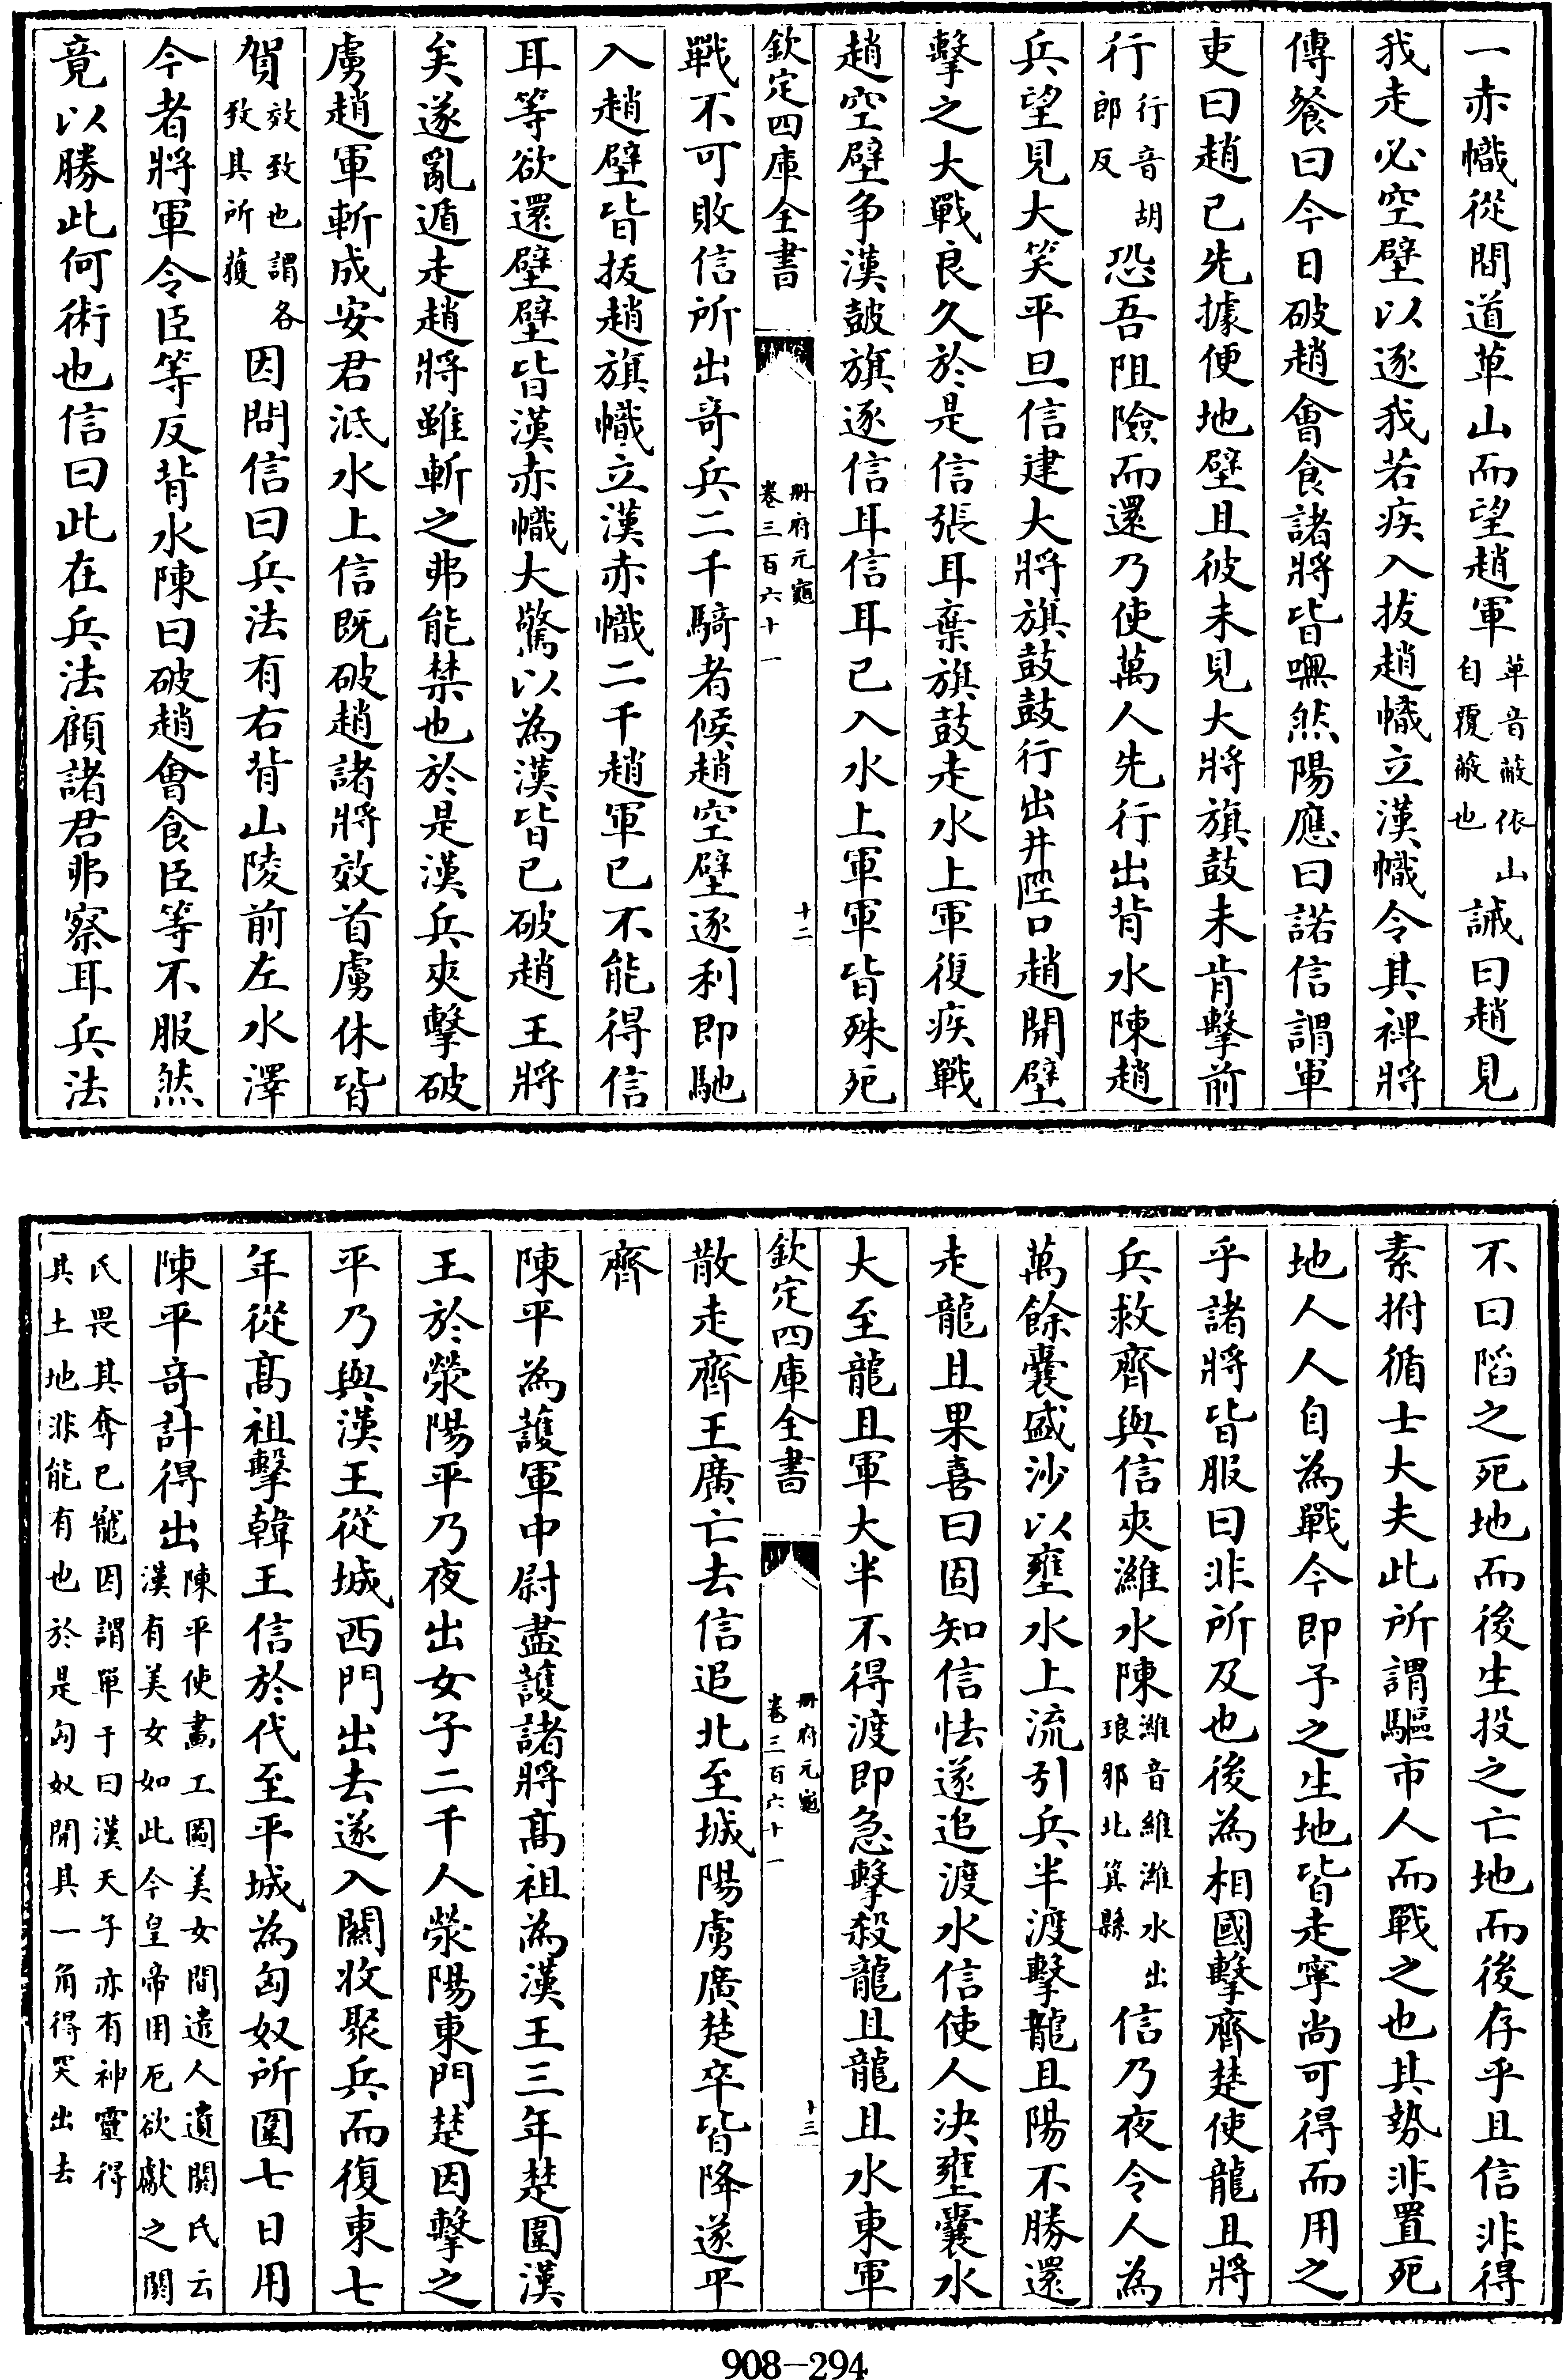 一赤幟從間道萆山而望趙軍萆音蔽依山自覆蔽也誡曰趙見
我走必空壁以逐我若疾入拔趙幟立漢幟令其裨將
傅餐曰今日破趙會食諸將皆嘸然陽應曰諾信謂軍
吏曰趙已先據便地壁且彼未見大將旗鼓未肯擊前
行行音胡郎反恐吾阻險而還乃使萬人先行出背水陳趙
兵望見大笑平旦信建大將旗鼓鼓行出井陘口趙開壁
擊之大戰良久於是信張耳棄旗鼓走水上軍復疾戰
趙空壁争漢鼓旗逐信耳信耳已入水上軍軍皆殊死
欽定四庫全書 冊府元龜卷三百六十一 十二
戰不可敗信所出竒兵二千騎者候趙空壁逐利即馳
入趙壁皆拔趙旗幟立漢赤幟二千趙軍已不能得信
耳等欲還壁壁皆漢赤幟大驚以為漢皆已破趙王將
矣遂亂遁走趙將雖斬之弗能禁也於是漢兵夾擊破
虜趙軍斬成安君泜水上信既破趙諸將效首虜休皆
賀效致也謂各致其所獲因問信曰兵法有右背山陵前左水澤
今者將軍令臣等反背水陳曰破趙會食臣等不服然
竟以勝此何術也信曰此在兵法顧諸君弗察耳兵法
不曰䧟之死地而後生投之亡地而後存乎且信非得
素拊循士大夫此所謂驅市人而戰之也其勢非置死
地人人自為戰今即予之生地皆走寧尚可得而用之
乎諸將皆服曰非所及也後為相國擊齊楚使龍且將
兵救齊與信夾濰水陳濰音維濰水出琅邪北箕縣信乃夜令人為
萬餘囊盛沙以壅水上流引兵半渡擊龍且陽不勝還
走龍且果喜曰固知信怯遂追渡水信使人決壅囊水
大至龍且軍大半不得渡即急擊殺龍且龍且水東軍
欽定四庫全書 冊府元龜卷三百六十一 十三
散走齊王廣亡去信追北至城陽虜廣楚卒皆降遂平
齊
陳平為護軍中尉盡護諸將髙祖為漢王三年楚圍漢
王於滎陽平乃夜出女子二千人滎陽東門楚因擊之
平乃與漢王從城西門出去遂入關收聚兵而復東七
年從髙祖擊韓王信於代至平城為匈奴所圍七日用
陳平竒計得出陳平使畫工圖美女間遣人遺閼氏云漢有美女如此今皇帝用厄欲獻之閼
氏畏其奪已寵因謂單于曰漢天子亦有神靈得其土地非能有也於是匈奴開其一角得突出去
908—294